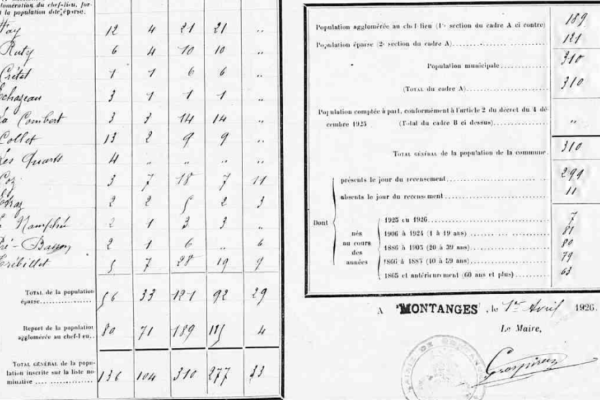 glomération du chef-lieu, for-
la population dite éparse.
12 4 21 21
Ruty 6 4 10 10 "
Crétet 1 1 6 6 "
3 1 1 1 "
La Combert 3 3 14 14 "
Collet 13 2 9 9 "
Les Quarts 4 " " " "
3 7 18 7 11
2 2 5 2 3
2 1 3 3 "
2 1 6 " 6
Trébillet 5 7 28 19 9
TOTAL de la population
éparse 56 33 121 92 29
Report de la population
agglomérée au chef-lieu. 80 71 189 185 4
TOTAL GÉNÉRAL de la popu-
lation inscrite sur la liste no-
minative 136 104 310 277 33
Population agglomérée au chef-lieu (1re section du cadre A ci contre) 189
Population éparse (2e section du cadre A) 121
Population municipale 310
(TOTAL du cadre A) 310
Population comptée à part, conformément à l'article 2 du décret du 4 dé-
cembre 1925 (Total du cadre B ci dessus) "
TOTAL GÉNÉRAL de la population de la commune 310
présents le jour du recensement 299
absents le jour du recensement 11
Dont
nés
au cours
des
années
1925 ou 1926 7
1906 à 1924 (1 à 19 ans) 81
1886 à 1905 (20 à 39 ans) 80
1866 à 1885 (40 à 59 ans) 79
1865 et antérieurement (60 ans et plus) 63
A MONTANGES, le 1er Avril 1926.
Le Maire,
Grospiron